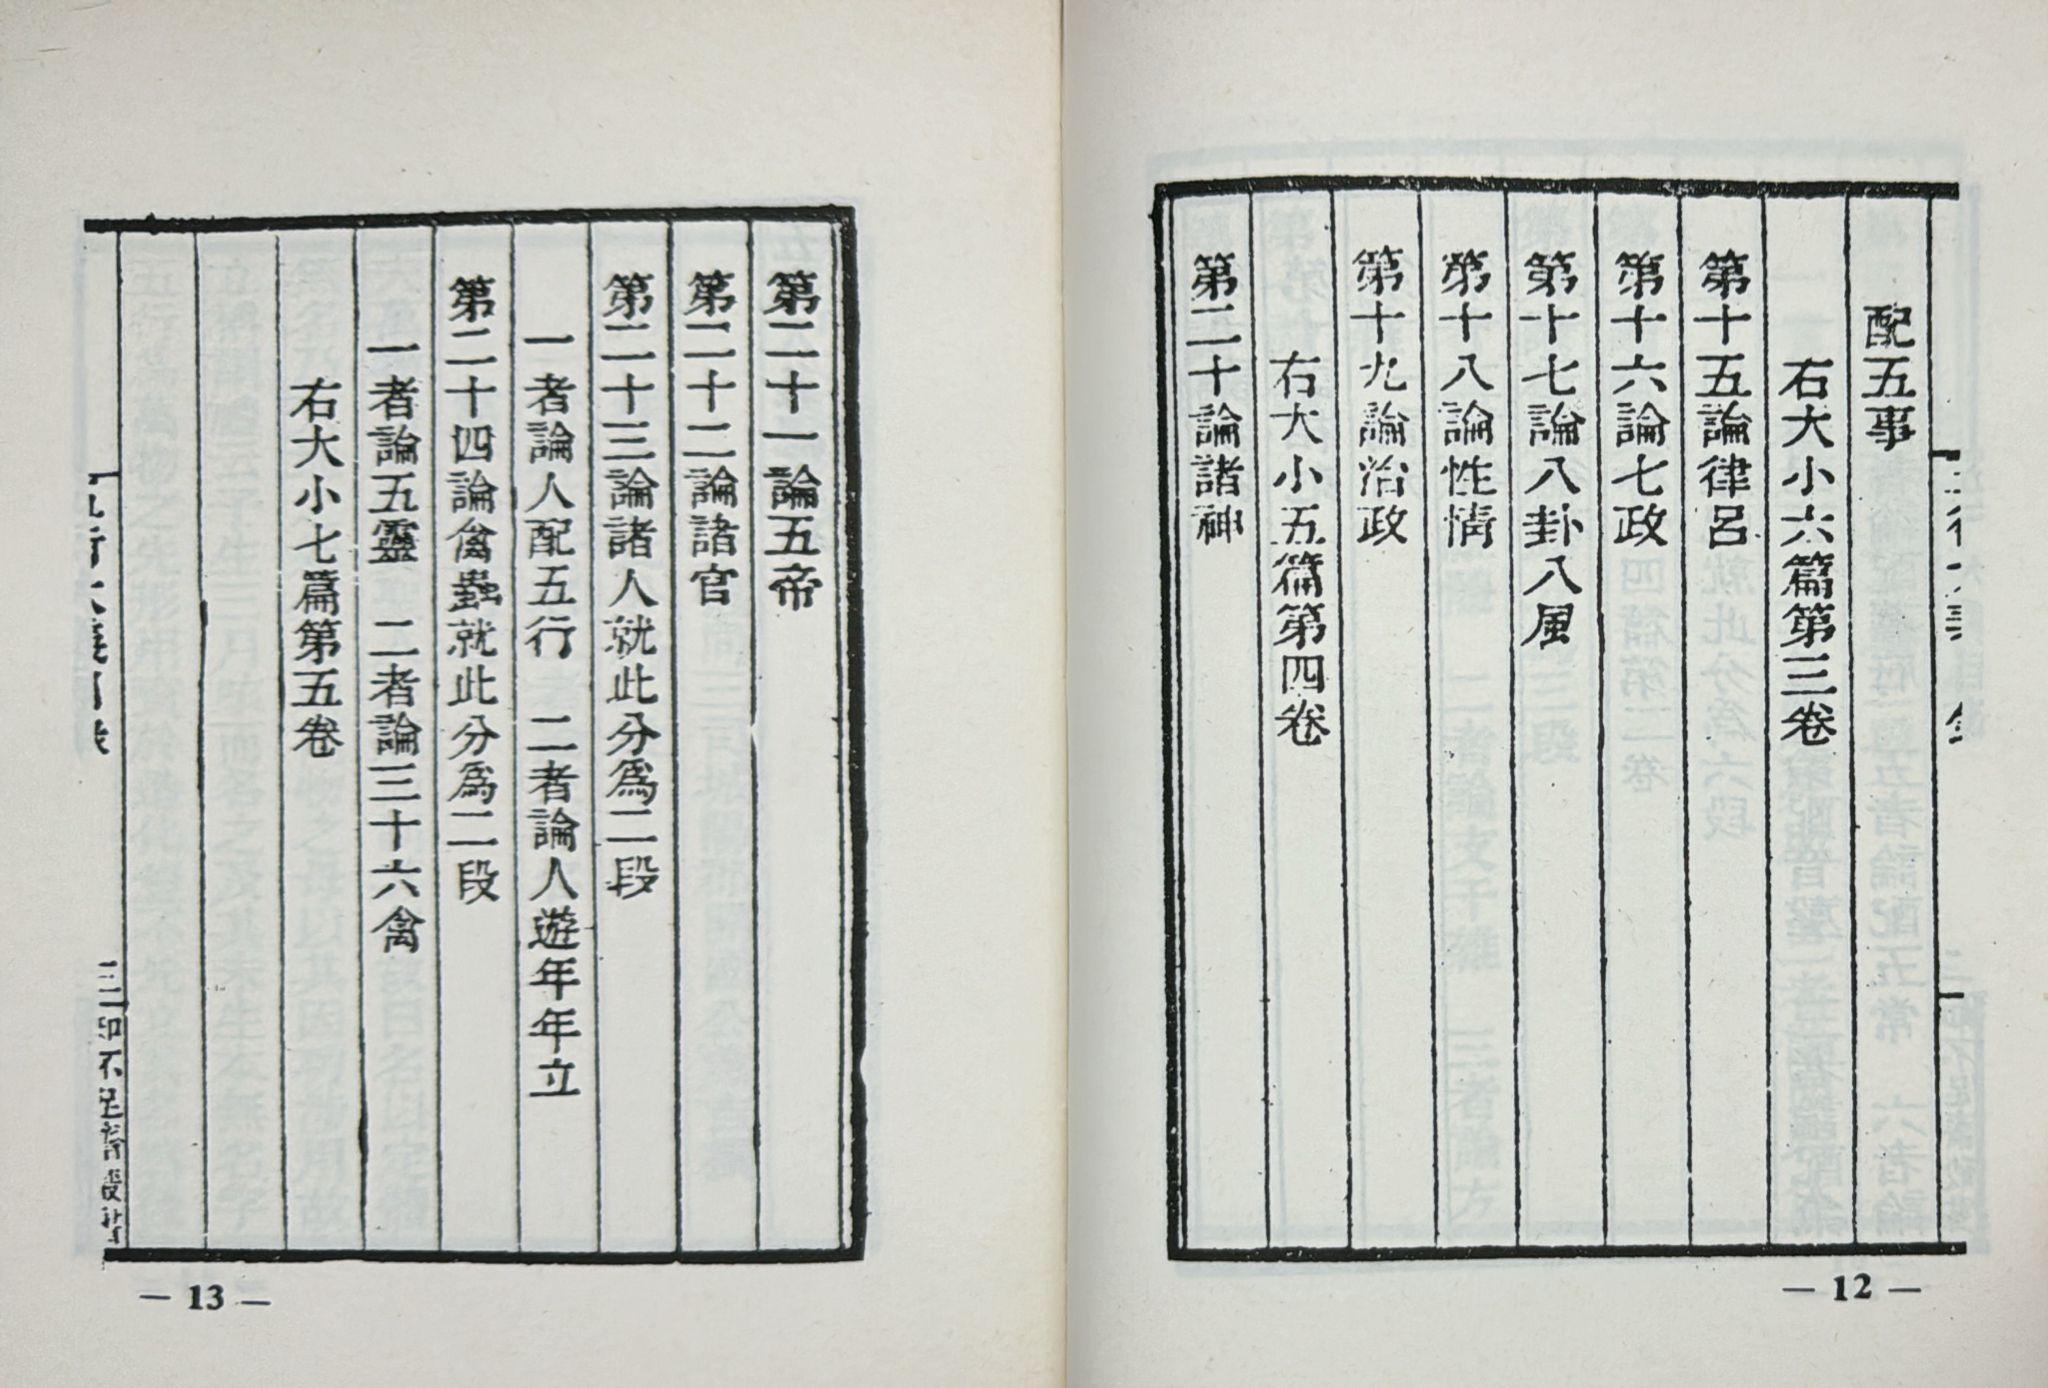 配五事
右大小六篇第三卷
第十五論律呂
第十六論七政
第十七論八卦八風
第十八論性情
第十九論治政
右大小五篇第四卷
第二十論諸神
— 12 —
第二十一論五帝
第二十二論諸官
第二十三論諸人就此分爲二段
一者論人配五行 二者論人遊年年立
第二十四論禽蟲就此分爲二段
一者論五靈 二者論三十六禽
右大小七篇第五卷
三
知不足齋叢書
— 13 —